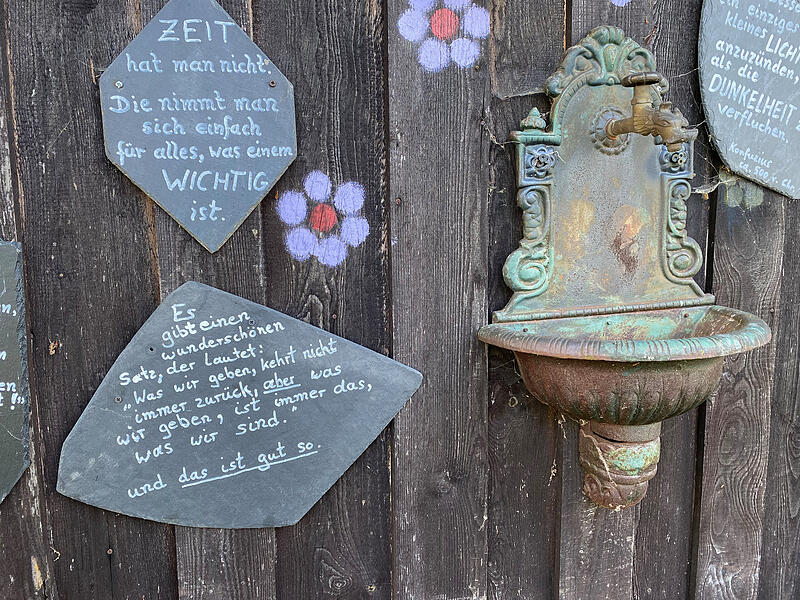 ZEIT
hat man nicht.
Die nimmt man
sich einfach
für alles, was einem
WICHTIG
ist.
Es
gibt einen
wunderschönen
Satz, der lautet:
"Was wir geben, kehrt nicht
immer zurück, aber was
wir geben, ist immer das,
was wir sind."
und das ist gut so.
ein einziges
kleines LICHT
anzuzünden,
als die
DUNKELHEIT
verfluchen.
Konfuzius
ca. 500 v. Chr.